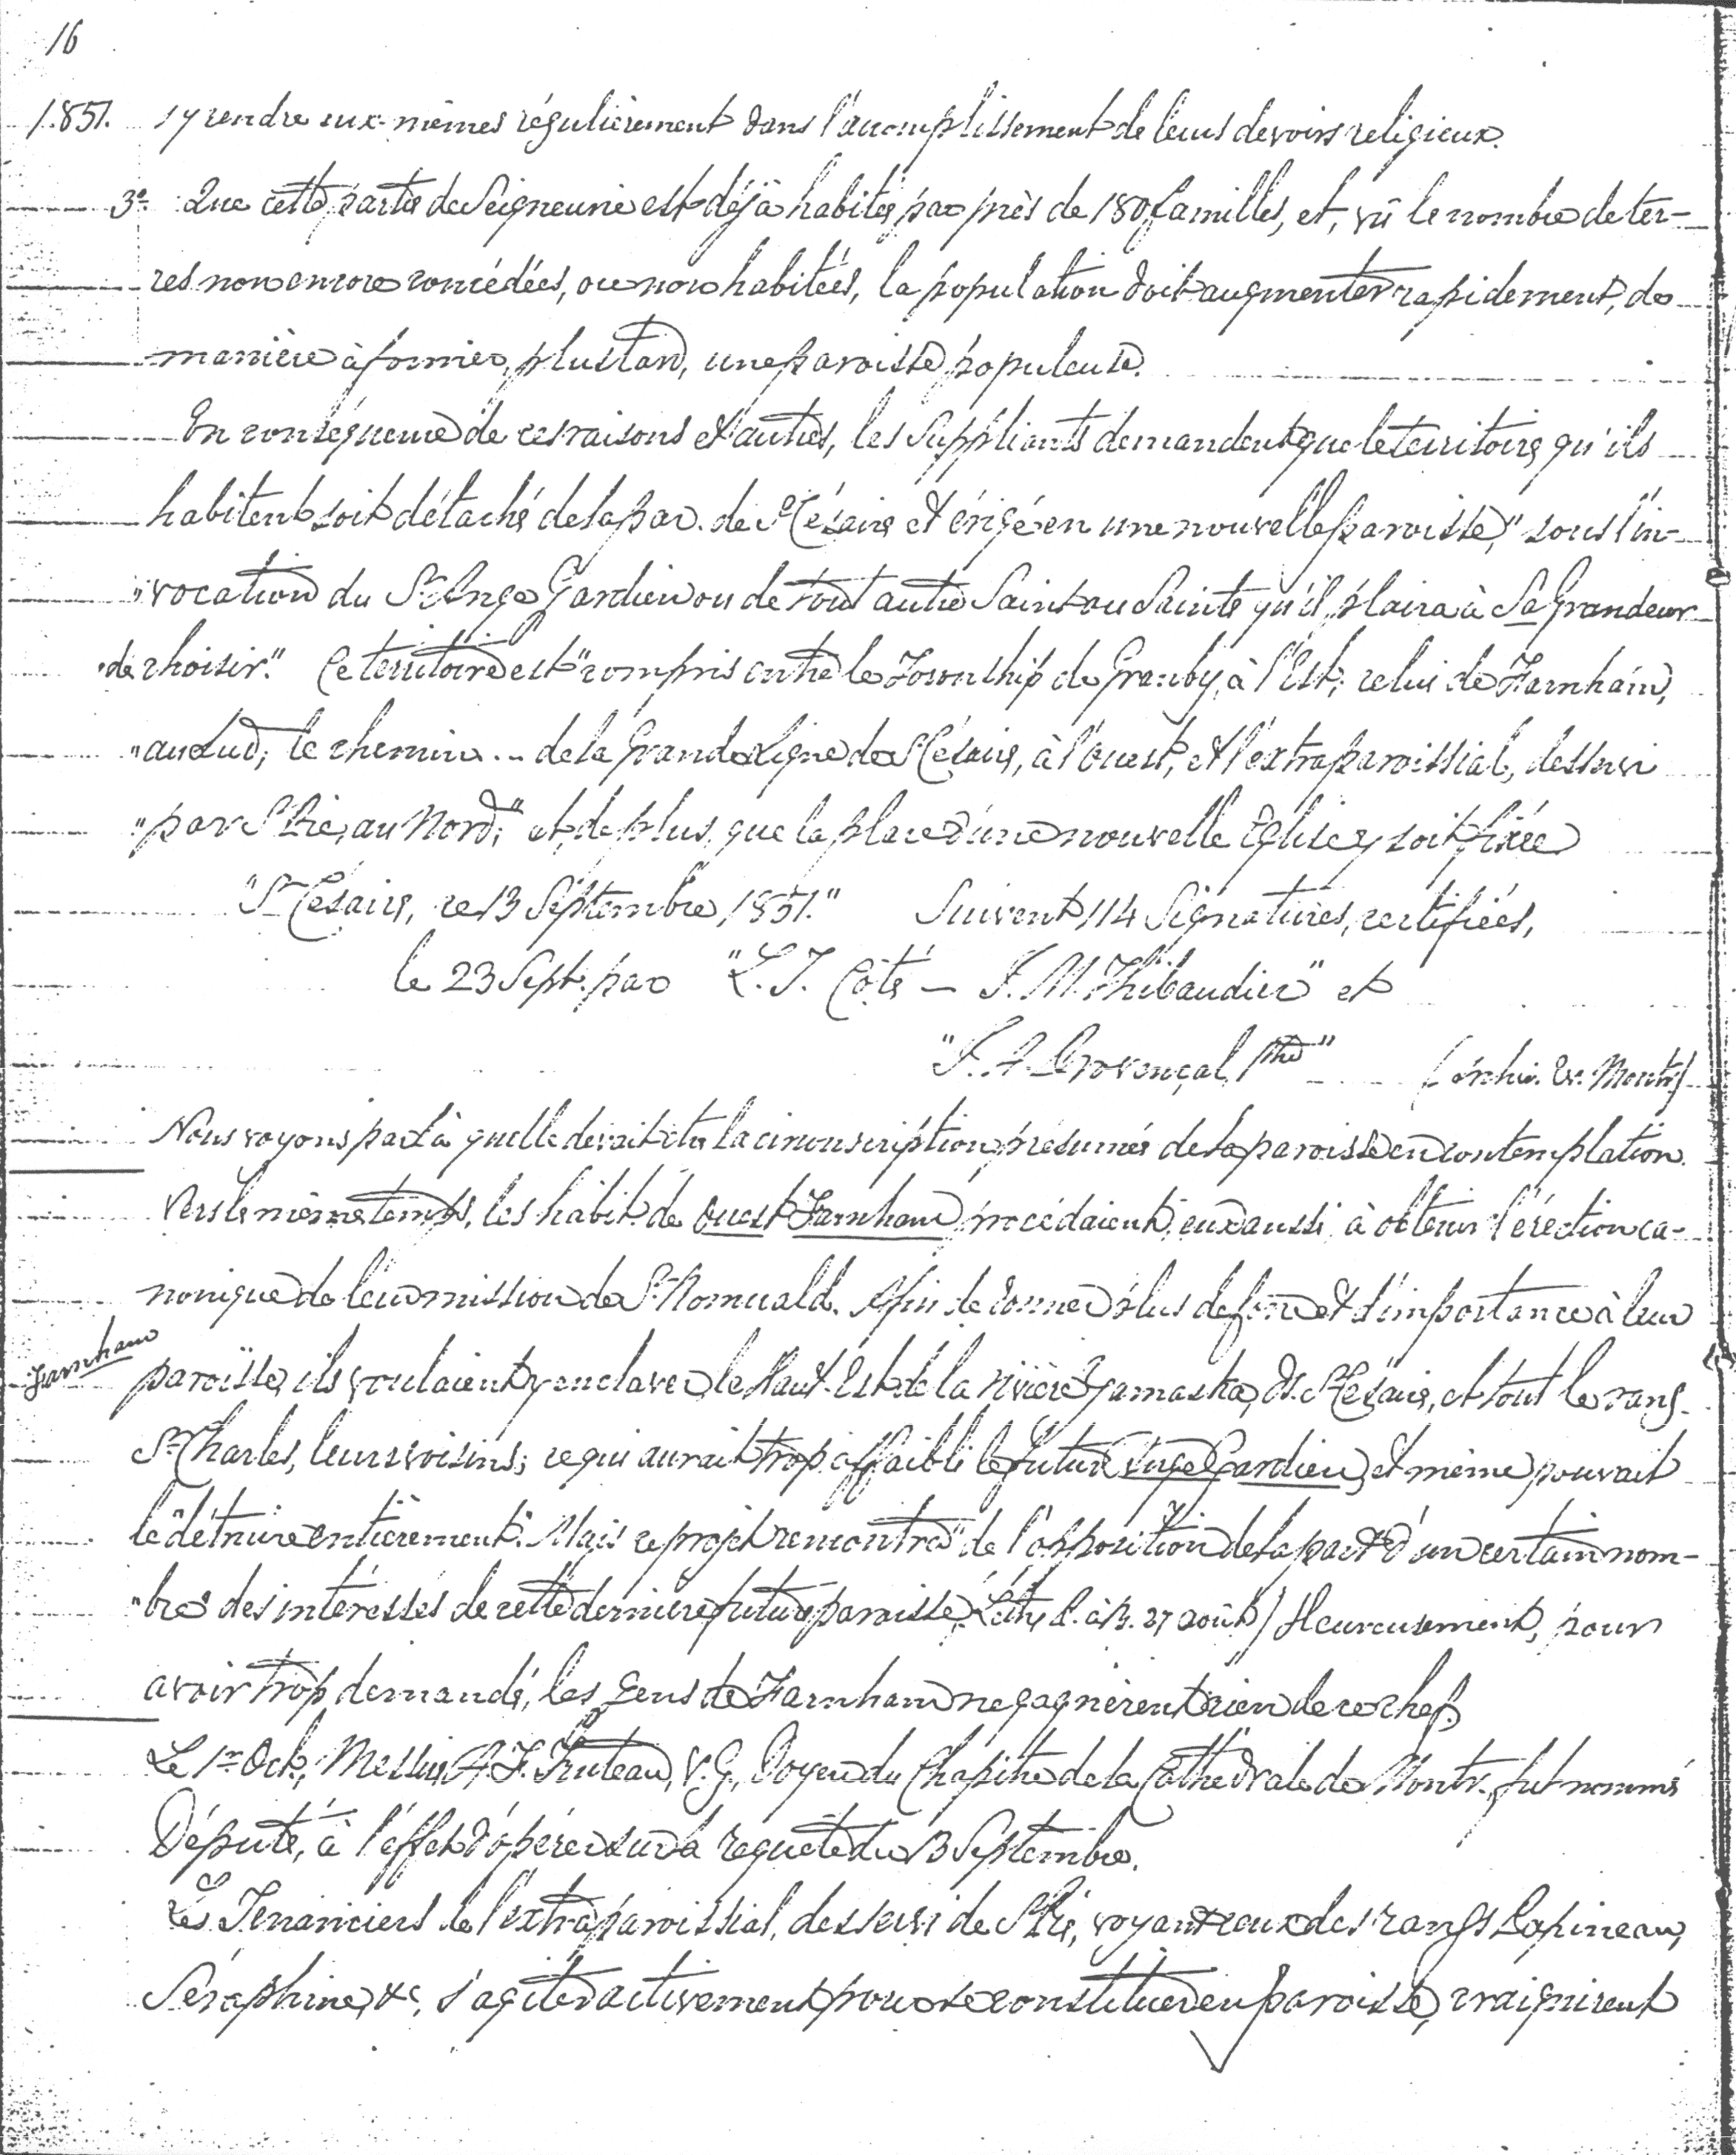 16
1851. s'y rendre eux-mêmes régulièrement dans l'accomplissement de leurs devoirs religieux.
3o. Que cette partie de Seigneurie est déjà habitée par près de 180 familles, et, vû le nombre de ter-
res non encore concédées, ou non habitées, la population doit augmenter rapidement, de
manière à former, plus tard, une paroisse populeuse.
En conséquence de ces raisons et autres, les Suppliants demandent que le territoire qu'ils
habitent soit détaché de la par. de St Césaire et érigé en une nouvelle paroisse, "sous l'in-
"vocation du St Ange Gardien ou de tout autre Saint ou Sainte qu'il plaira à Sa Grandeur
"de choisir." Ce territoire est "compris entre le Township de Granby, à l'Est; celui de Farnham,
"au Sud; le chemin... de la Grande Ligne de St Césaire, à l'Ouest, et l'extraparoissial, desservi
"par St Pie, au Nord;" et, de plus, que la place d'une nouvelle Eglise y soit fixée
"St Césaire, ce 13 Septembre, 1851." Suivent 114 Signatures, certifiées,
le 23 Sept. par "L. J. Côté — F. M. Thibaudier" et
"J. A. Provençal, Ptre" (Archiv. Ev. Montr.)
Nous voyons par là quelle devait être la circonscription présumée de la paroisse en contemplation.
Vers le même temps, les habit. de Ouest Farnham procédaient, eux aussi, à obtenir l'érection ca-
nonique de leur mission de St Romuald. Afin de donner plus de force et d'importance à leur
Farnham
paroisse, ils voulaient y enclaver le Haut-Est de la rivière Yamaska, ds. St Césaire, et tout le rang
St Charles, leurs voisins; ce qui aurait trop affaibli le futur Ange Gardien, et même pouvait
le détruire entièrement. Mais ce projet rencontra "de l'opposition de la part d'un certain nom-
"bre des intéressés de cette dernière future paroisse." 27 août) Heureusement, pour
avoir trop demandé, les gens de Farnham ne gagnèrent rien de ce chef.
Le 1er Oct., Messire A. F. Truteau, V. G., Doyen du Chapitre de la Cathédrale de Montr., fut nommé
Député, à l'effet d'opérer sur la requête du 13 Septembre.
Les Tenanciers de l'extraparoissial, desservi de St Pie, voyant ceux des rangs Papineau,
Séraphine, &c, s'agiter activement pour se constituer en paroisse, craignirent